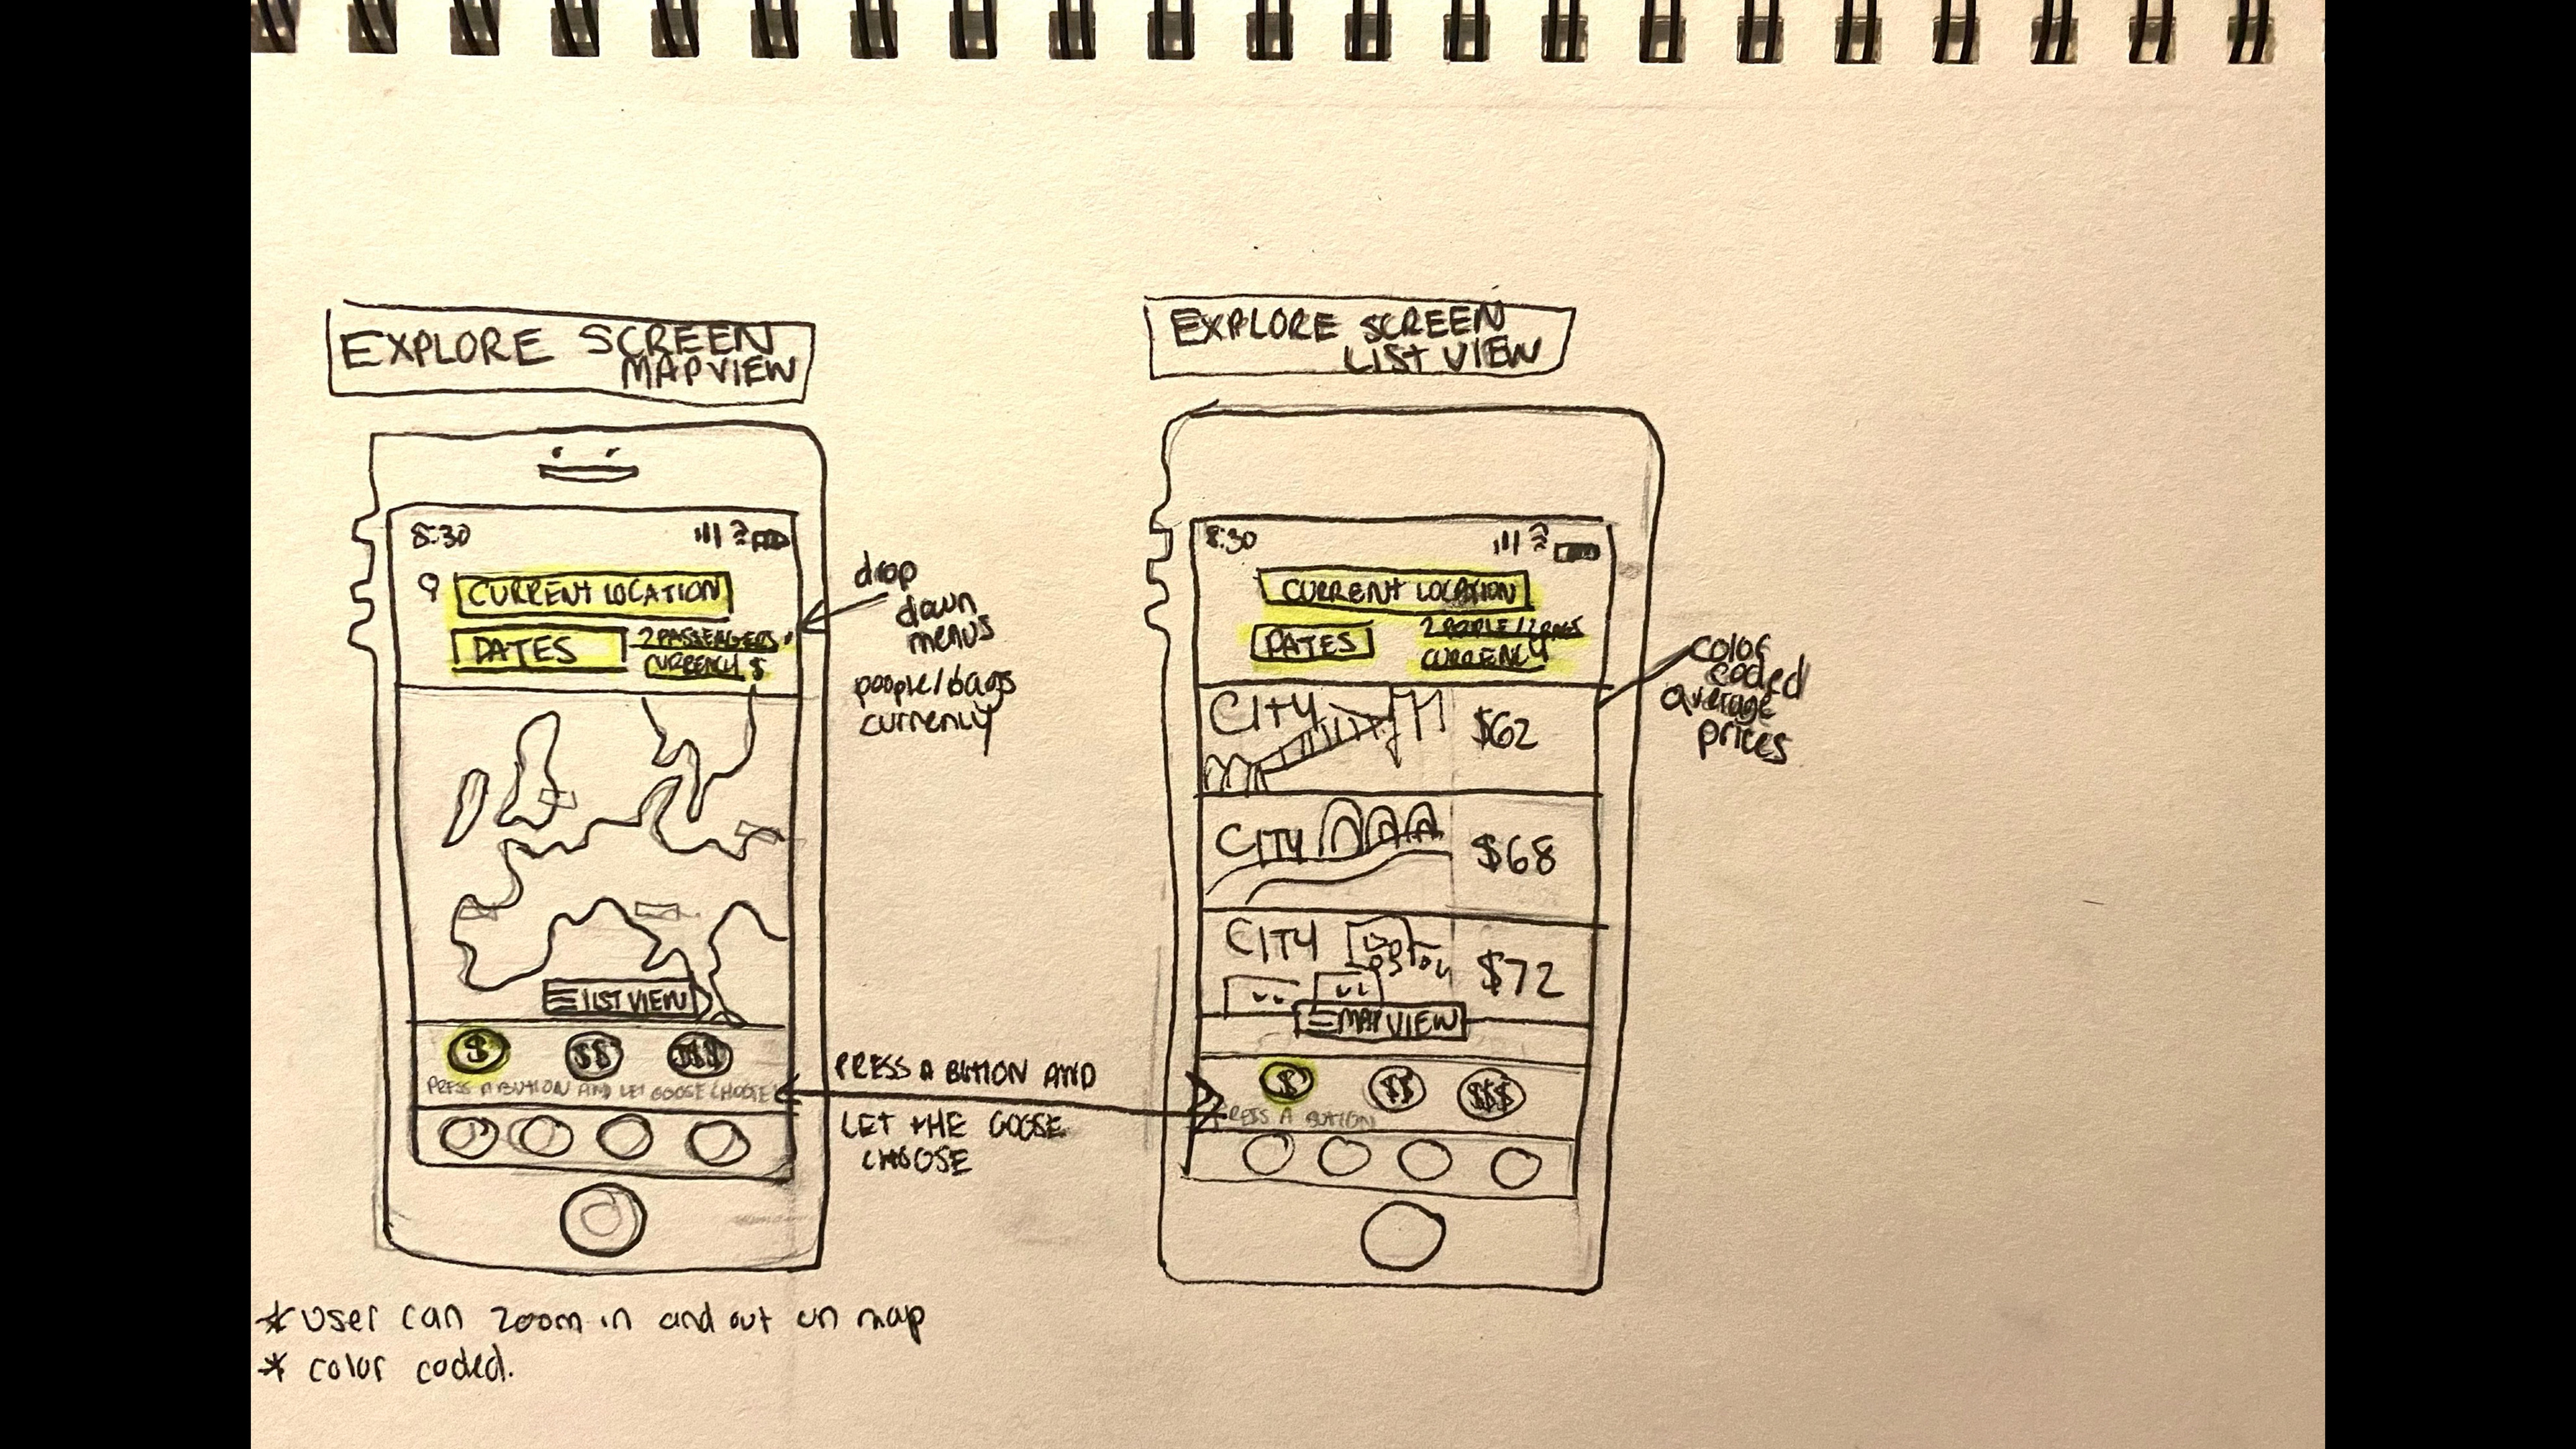 EXPLORE SCREEN
MAP VIEW
8:30
CURRENT LOCATION
DATES
2 PASSENGERS
CURRENCY $
drop
down
menus
people/bags
currency
LIST VIEW
$ $$ $$$
PRESS A BUTTON AND LET GOOSE CHOOSE
PRESS A BUTTON AND
LET THE GOOSE
CHOOSE
* User can zoom in and out on map
* color coded.
EXPLORE SCREEN
LIST VIEW
8:30
CURRENT LOCATION
DATES
2 PEOPLE/2 BAGS
CURRENCY
color
coded
average
prices
CITY $62
CITY $68
CITY $72
MAP VIEW
$ $$ $$$
PRESS A BUTTON